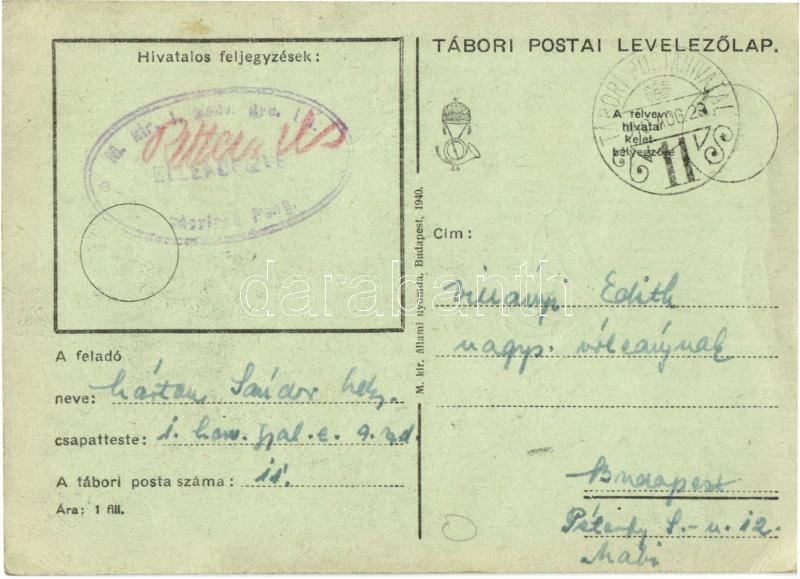 Hivatalos feljegyzések:
M. kir. 1. honv.
ELLENŐRIZVE
Parság.
A feladó
neve: Márton Sándor
csapatteste: 1. hon. gyal. e. 9. szd.
A tábori posta száma: 11.
Ára: 1 fill.
M. kir. állami nyomda, Budapest, 1940.
TÁBORI POSTAI LEVELEZŐLAP.
TÁBORI POSTAHIVATAL
A felvevő
hivatal
kelet-
bélyegzője
AUG 29
11
Cím:
Villányi Edith
nagys. úrleánynak
Budapest
Péterfy S.-u. 12.
Mabi
darabanth